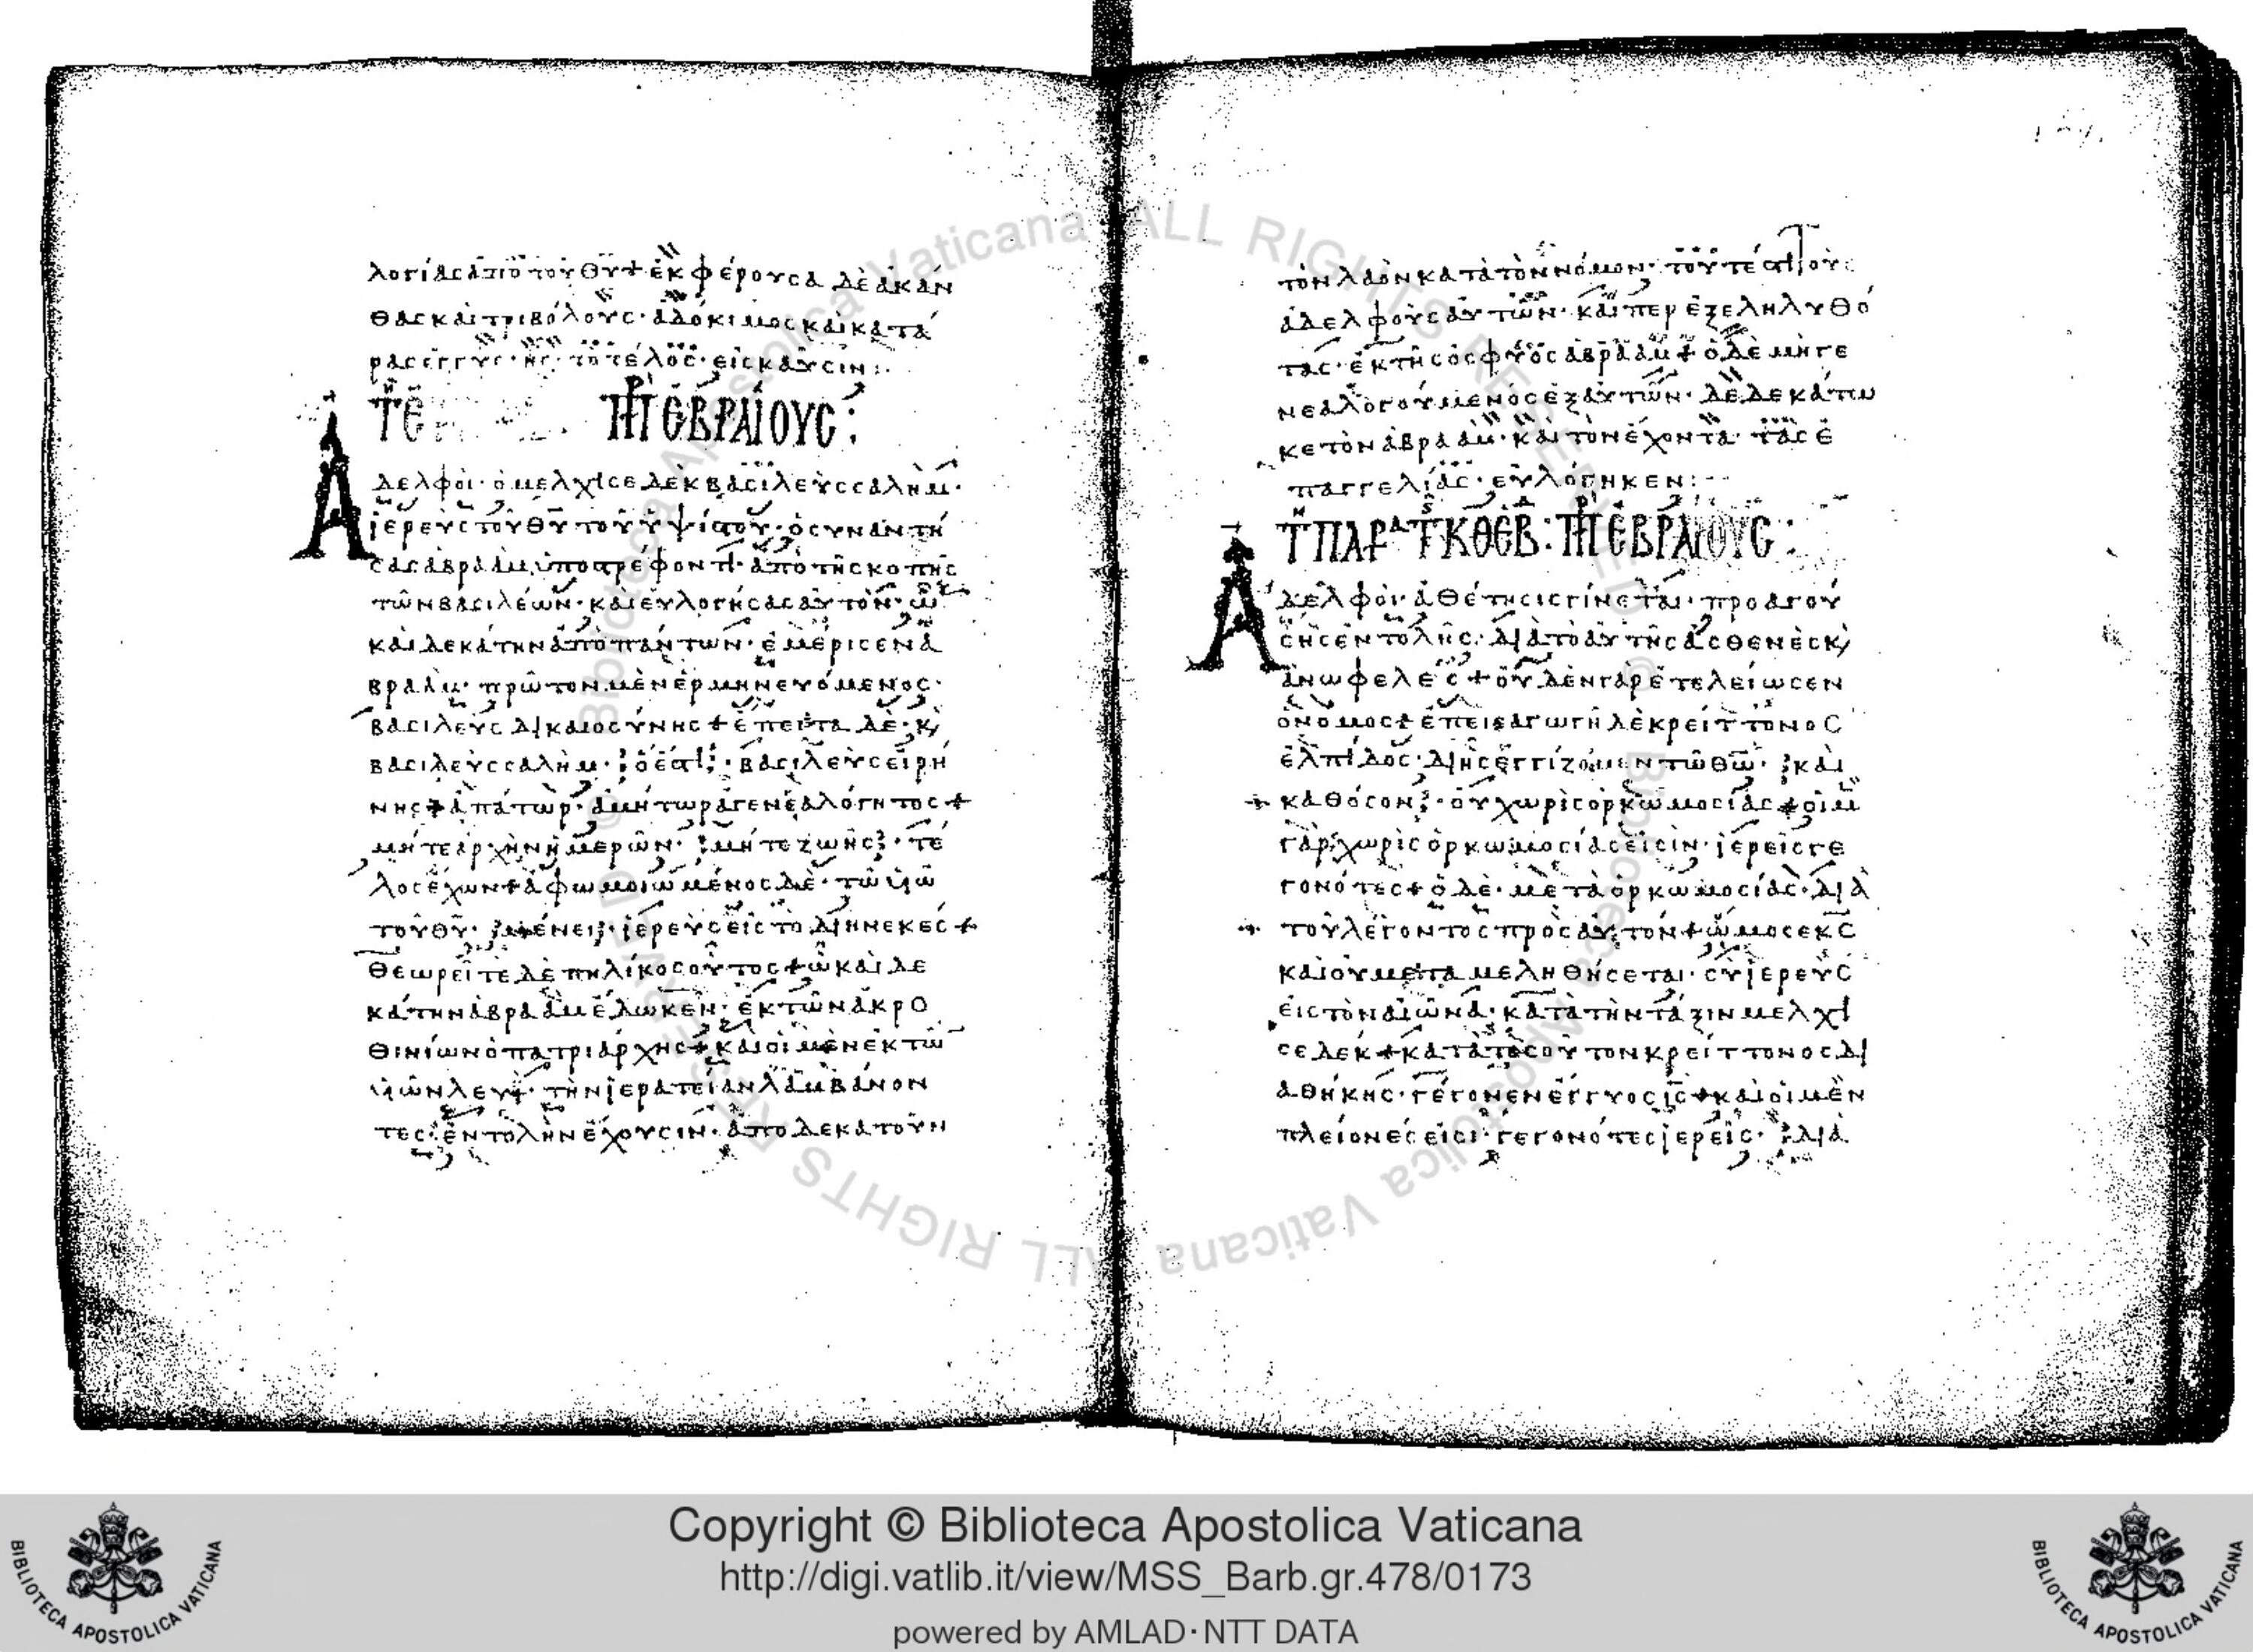 λογίας ἀπὸ τοῦ θ̅υ̅ + ἐκφέρουσα δὲ ἀκάν
θας καὶ τριβόλους· ἀδόκιμος καὶ κατά
ρας ἐγγύς· ἧς· τὸ τέλος· εἰς καῦσιν:
ἙΒΡΑΙΟΥΣ:
Ἀδελφοὶ· ὁ μελχισεδὲκ βασιλεὺς σαλήμ·
ἱερεὺς τοῦ θ̅υ̅ τοῦ ὑψίστου· ὁ συναντή
σας ἀβραὰμ ὑποστρέφοντι· ἀπὸ τῆς κοπῆς
τῶν βασιλέων· καὶ εὐλογήσας αὐτὸν· ὧ
καὶ δεκάτην ἀπὸ πάντων· ἐμέρισεν ἀ
βραάμ· πρῶτον μὲν ἑρμηνευόμενος·
βασιλεὺς δικαιοσύνης + ἔπειτα δὲ· κ,
βασιλεὺς σαλήμ· ὅ ἐστι· βασιλεὺς εἰρή
νης + ἀπάτωρ· ἀμήτωρ ἀγενεαλόγητος +
μήτε ἀρχὴν ἡμερῶν· μήτε ζωῆς· τέ
λος ἔχων + ἀφωμοιωμένος δὲ· τῶ υἱῶ
τοῦ θ̅υ̅· μένει· ἱερεὺς εἰς τὸ διηνεκές +
Θεωρεῖτε δὲ πηλίκος οὗτος + ὧ καὶ δε
κάτην ἀβραὰμ ἔδωκεν· ἐκ τῶν ἀκρο
θινίων ὁ πατριάρχης + καὶ οἱ μὲν ἐκ τῶ
υἱῶν λευῒ· τὴν ἱερατείαν λαμβάνον
τες· ἐντολὴν ἔχουσιν· ἀποδεκατοῦν
τὸν λαὸν κατὰ τὸν νόμον· τοῦτέστι τοὺς
ἀδελφοὺς αὐτῶν· καίπερ ἐξεληλυθό
τας· ἐκ τῆς ὀσφύος ἀβραάμ + ὁ δὲ μὴ γε
νεαλογούμενος ἐξ αὐτῶν· δεδεκάτω
κε τὸν ἀβραάμ· καὶ τὸν ἔχοντα· τὰς ἐ
παγγελίας· εὐλόγηκεν:
ΤΗ ΠΑΡΑ ΤΣ ΚΘ ΕΒ: ἙΒΡΑΙΟΥΣ:
Ἀδελφοὶ· ἀθέτησις γίνεται· προαγού
σης ἐντολῆς· διὰ τὸ αὐτῆς ἀσθενὲς κ,
ἀνωφελές + οὐδὲν γὰρ ἐτελείωσεν
ὁ νόμος + ἐπεισαγωγὴ δὲ κρείττονος
ἐλπίδος· δι ἧς ἐγγίζομεν τῶ θ̅ω̅· καὶ
καθόσον· οὐ χωρὶς ὁρκωμοσίας + οἱ μ
γὰρ χωρὶς ὁρκωμοσίας εἰσὶν· ἱερεῖς γε
γονότες + ὁ δὲ· μετὰ ὁρκωμοσίας· διὰ
τοῦ λέγοντος πρὸς αὐτόν + ὤμοσε κ̅ς̅
καὶ οὐ μεταμεληθήσεται· σὺ ἱερεὺς
εἰς τὸν αἰῶνα· κατὰ τὴν τάξιν μελχι
σεδέκ + κατὰ τοσοῦτον κρείττονος δι
αθήκης· γέγονεν ἔγγυος ι̅ς̅ + καὶ οἱ μὲν
πλείονές εἰσι· γεγονότες ἱερεῖς· διὰ
Copyright © Biblioteca Apostolica Vaticana
http://digi.vatlib.it/view/MSS_Barb.gr.478/0173
powered by AMLAD·NTT DATA
BIBLIOTECA APOSTOLICA VATICANA
BIBLIOTECA APOSTOLICA VATICANA